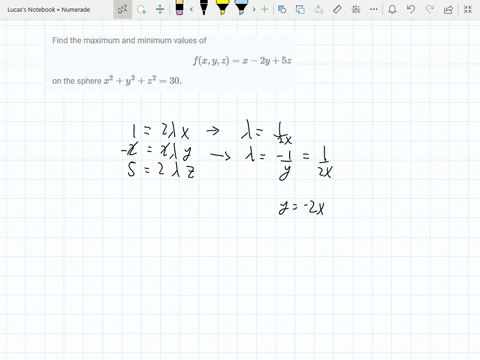 Lucas's Notebook • Numerade
Find the maximum and minimum values of
f(x, y, z) = x − 2y + 5z
on the sphere x² + y² + z² = 30.
1 = 2λx → λ = 1/2x
-2 = 2λy → λ = -1/y = 1/2x
5 = 2λz
y = -2x